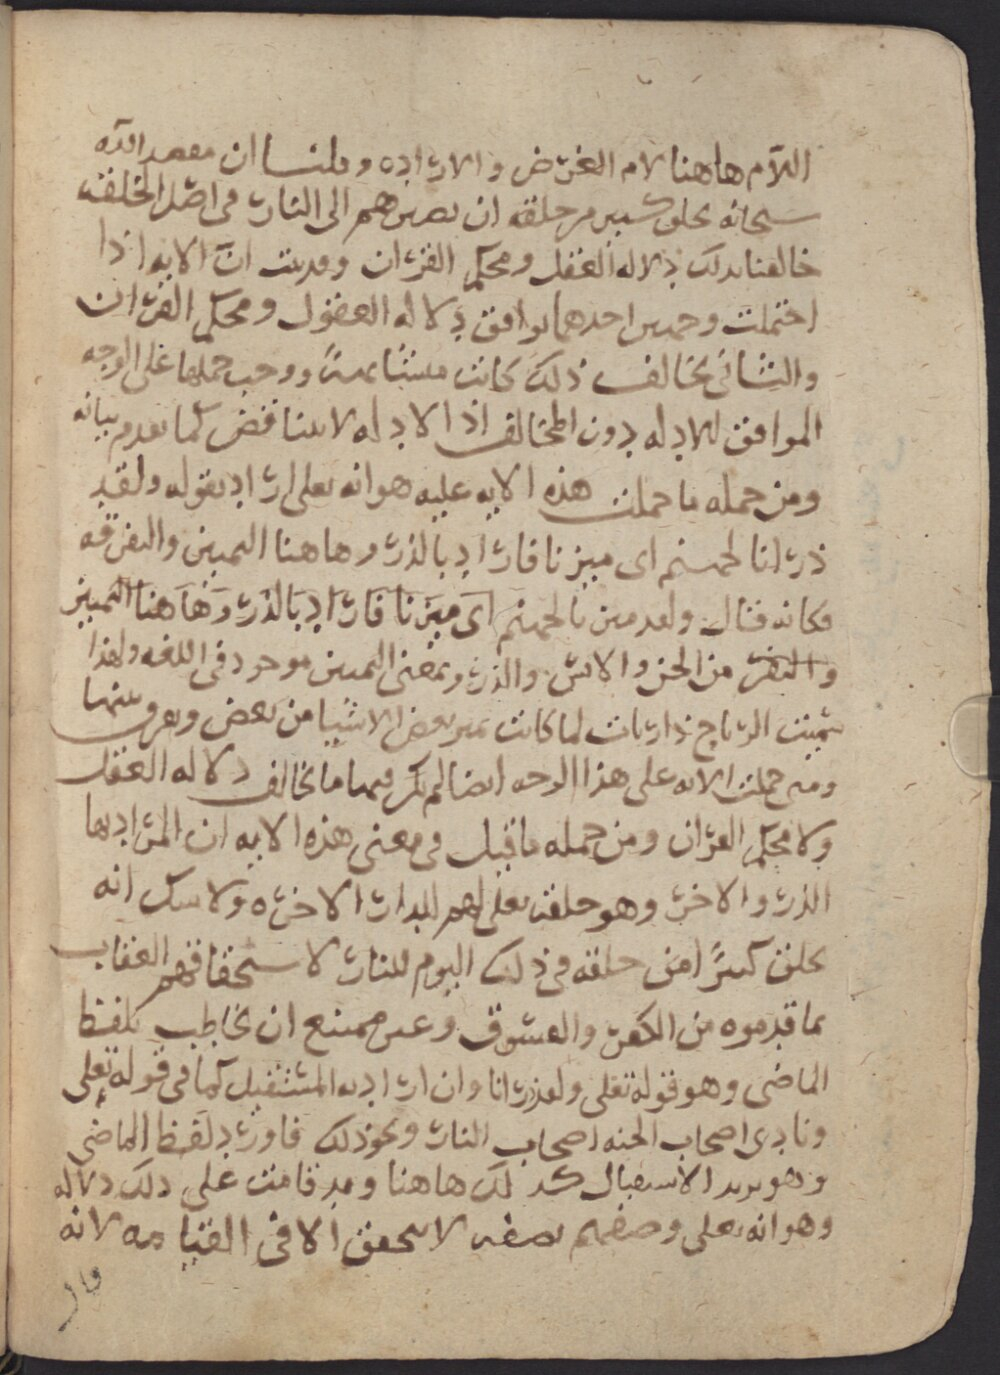 اللآم هاهنا لام الغرض والاراده وقلنا ان مقصد الله
سبحانه بخلق كثير من خلقه ان يصيرهم الى النار في اصل الخلقه
خالفنا بذلك دلاله العقل ومحكم القران وقد بينت ان الايه اذا
احتملت وجهين احدهما يوافق دلاله العقول ومحكم القران
والثاني يخالف ذلك كانت متشابهة ووجب حملها على الوجه
الموافق للادله دون المخالف اذ الادله لا تتناقض كما تقدم بيانه
ومن جمله ما حملت هذه الايه عليه هو انه تعلى اراد بقوله ولقد
ذرانا لجهنم اى ميزنا فاراد بالذرو هاهنا التميين والتفرقه
فكانه قال ولقد ميزنا لجهنم اى ميزنا فاراد بالذرو هاهنا التمييز
والتفر من الجن والانس والذرو بمعنى التمييز موجود في اللغه ولهذا
سميت الرياح ذاريات لما كانت تميز بعض الاشيا من بعض وتفرق بينها
ومتى حملت الايه على هذا الوجه ايضا لم يكن فيها ما يخالف دلاله العقل
ولا محكم القران ومن جمله ما قيل في معنى هذه الايه ان المراد بها
الذرو الاخر وهو خلقه تعلى لهم للدار الاخره ولا شك انه
يخلق كثيرًا من خلقه في ذلك اليوم للنار لاستحقاقهم العقاب
بما قدموه من الكفر والفسوق وغير ممتنع ان يخاطب بلفظ
الماضى وهو قوله تعلى ولقد ذرانا وان اراد به المستقبل كما في قوله تعلى
ونادى اصحاب الجنه اصحاب النار ونحو ذلك فاورد لفظ الماضى
وهو يريد الاستقبال كذلك هاهنا وقد قامت على ذلك دلاله
وهو انه تعلى وصفهم بصفه لا تتحقق الا في القيامه لانه